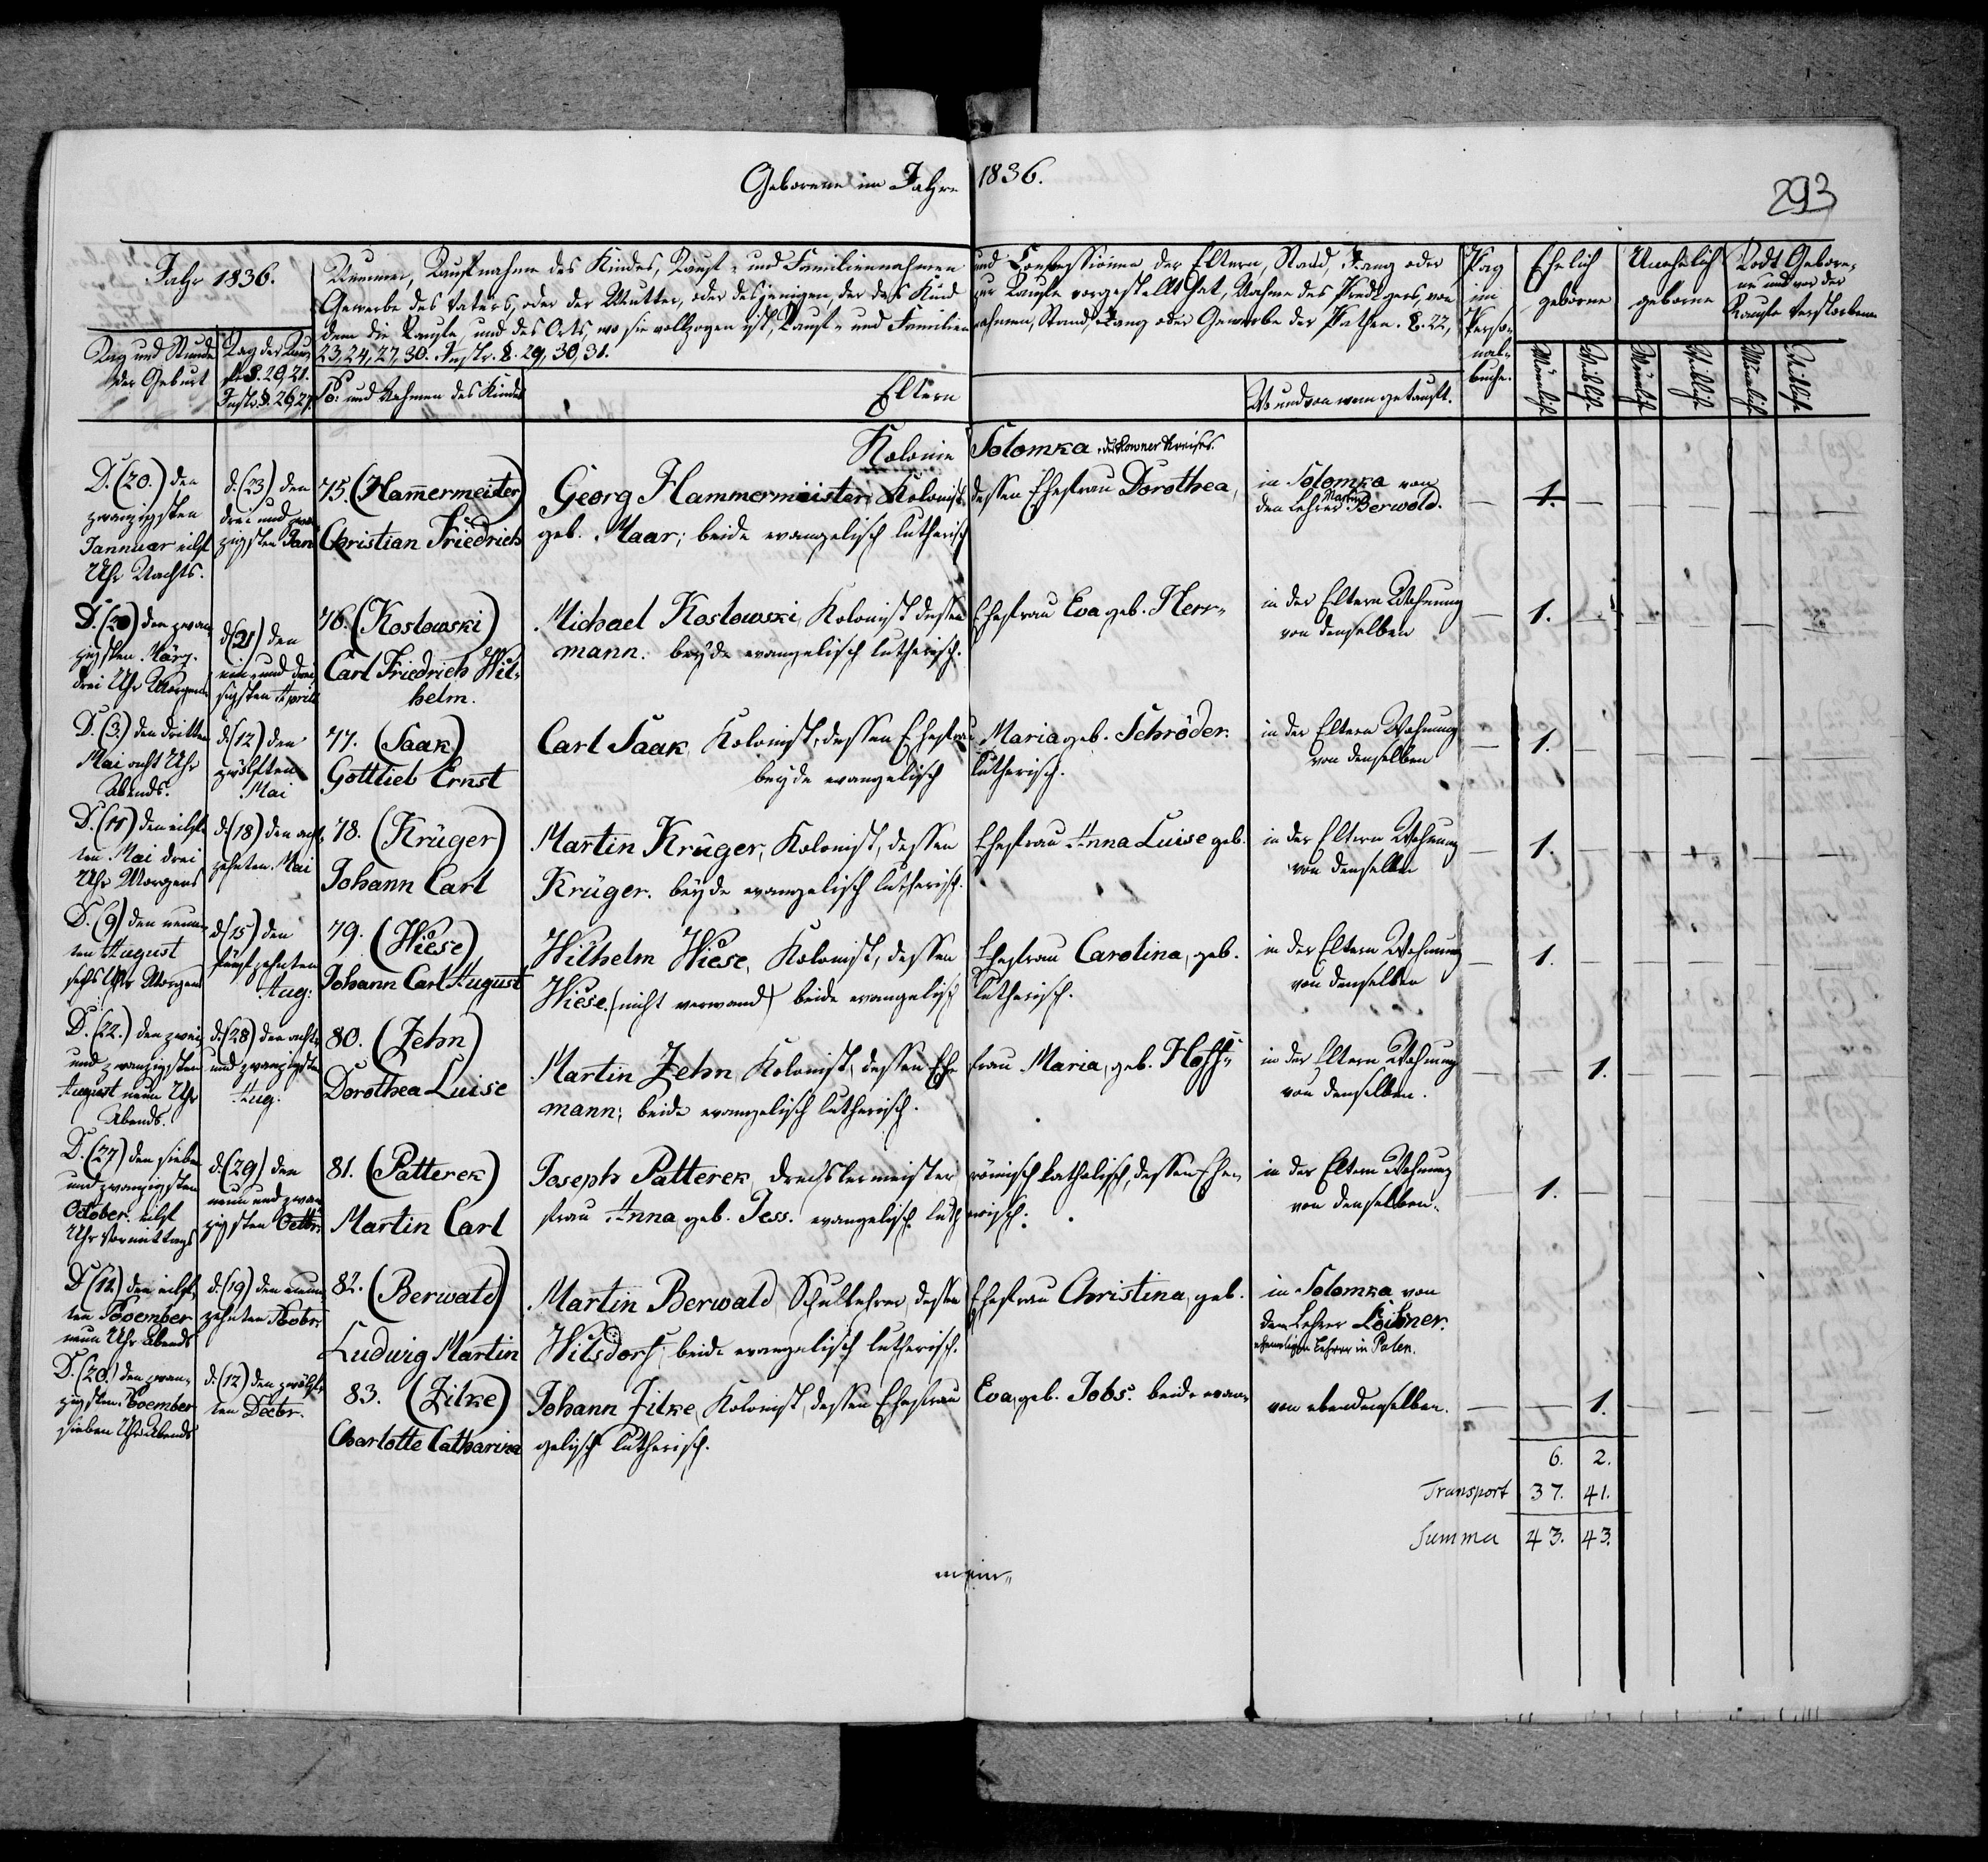 Geborene im Jahre 1836.
293
Jahr 1836.
Nummer, Taufnahme des Kindes, Tauf- und Familiennahmen und Confessionen der Eltern, Stand, Rang oder
Gewerbe des Vaters, oder der Mutter, oder desjenigen, der das Kind zur Taufe vorgestellt hat, Nahme des Predigers, von
dem die Taufe, und des Orts, wo sie vollzogen ist, Tauf- und Familiennahmen, Stand, Rang oder Gewerbe der Pathen. §. 22,
23, 24, 27, 30. Instr. §. 29, 30, 31.
Pag im Personal-buche.
Ehelich geborne
Unehelich geborne
Todt Geborene und vor der Taufe Verstorbene
Tag und Stunde der Geburt
Tag der Taufe §. 20, 21. Instr. §. 26, 27.
No. und Nahmen des Kindes
Eltern
Wo und von wem getauft.
Männlich
Weiblich
Männlich
Weiblich
Männlich
Weiblich
Kolonie Solomka, des Rowner Kreises.
D. (20.) den
zwanzigsten
Jannuar eilf
Uhr Nachts.
d. (23) den
drei und zwan
zigsten Jan
75. (Ham̄ermeister)
Christian Friedrich
Georg Hammermeister, Kolonist, dessen Ehefrau Dorothea,
geb. Maar; beide evangelisch lutherisch
in Solomka von
den Lehrer Martin Berwold.
1.
D. (20) den zwan
zigsten März.
drei Uhr Morgens
d. (31) den
ein und drei
sigsten April
76. (Koslowski)
Carl Friedrich Wil-
helm.
Michael Koslowski, Kolonist dessen Ehefrau Eva geb. Herr-
mann. beyde evangelisch lutherisch.
in der Eltern Wohnung
von demselben
1.
D. (3.) den dritten
Mai acht Uhr
Abends.
d. (12) den
zwölften
Mai
77. (Saak)
Gottlieb Ernst
Carl Saak, Kolonist, dessen Ehefrau Maria geb. Schröder.
beyde evangelisch lutherisch.
in der Eltern Wohnung
von demselben
1.
D. (11) den eilf-
ten Mai drei
Uhr Morgens
d. (18) den acht-
zehnten Mai
78. (Krüger)
Johann Carl
Martin Krüger, Kolonist, dessen Ehefrau Anna Luise geb.
Krüger. beyde evangelisch lutherisch.
in der Eltern Wohnung
von demselben
1.
D. (9) den neun-
ten August
sechs Uhr Morgens
d. (15) den
fünfzehnten
Aug:
79. (Wiese)
Johann Carl August
Wilhelm Wiese, Kolonist, dessen Ehefrau Carolina, geb.
Wiese. (nicht verwand) beide evangelisch lutherisch.
in der Eltern Wohnung
von demselben
1.
D. (22.) den zwei
und zwanzigsten
August neun Uhr
Abends.
d. (28) den acht-
und zwanzigsten
Aug.
80. (Zehn)
Dorothea Luise
Martin Zehn, Kolonist, dessen Ehefrau Maria, geb. Hoff-
mann; beide evangelisch lutherisch.
in der Eltern Wohnung
von demselben.
1.
D. (27) den sieben
und zwanzigsten
October. eilf
Uhr Vormittags
d. (29) den
neun und zwan
zigsten Octbr.
81. (Patterek)
Martin Carl
Joseph Patterek, Drechslermeister römisch katholisch, dessen Ehe-
frau Anna, geb. Jess. evangelisch lutherisch.
in der Eltern Wohnung
von demselben.
1.
D. (11.) den eilf-
ten November
neun Uhr Abends
d. (19) den neun
zehnten Nobr.
82. (Berwald)
Ludwig Martin
Martin Berwald, Schullehrer, dessen Ehefrau Christina, geb.
Wilsdorf, beide evangelisch lutherisch.
in Solomka von
dem Lehrer
ehemaligen Lehrer in Polen.
D. (20.) den zwan-
zigsten November
sieben Uhr Abends
d. (12) den zwölf-
ten Decbr.
83. (Zilke)
Charlotte Catharina
Johann Zilke, Kolonist, dessen Ehefrau Eva, geb. Jobs. beide evan-
gelisch lutherisch.
von ebendemselben.
1.
6. 2.
Transport 37. 41.
Summa 43. 43.